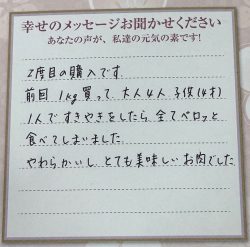 幸せのメッセージお聞かせください
あなたの声が、私達の元気の素です!
2度目の購入です
前回 1kg買って 大人4人 子供(4才)
1人ですきやきをしたら 全てペロッと
食べてしまいました
やわらかいし とても美味しいお肉でした